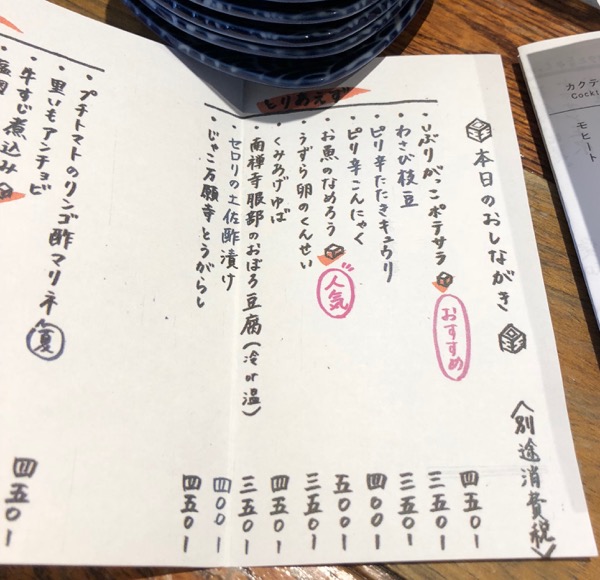 カクテ
Cockt
モヒート
本日のおしながき
〈別途消費税〉
とりあえず
・いぶりがっこポテサラ おすすめ 四五〇ー
・わさび枝豆 三五〇ー
・ピリ辛たたきキュウリ 三五〇ー
・ピリ辛こんにゃく 四〇〇ー
・お魚のなめろう 人気 五〇〇ー
・うずら卵のくんせい 三五〇ー
・くみあげゆば 四五〇ー
・南禅寺服部のおぼろ豆腐(冷or温) 三五〇ー
・セロリの土佐酢漬け 四〇〇ー
・じゃこ万願寺とうがらし 四五〇ー
・プチトマトのリンゴ酢マリネ 夏 四五〇ー
・里いもアンチョビ
・牛すじ煮込み